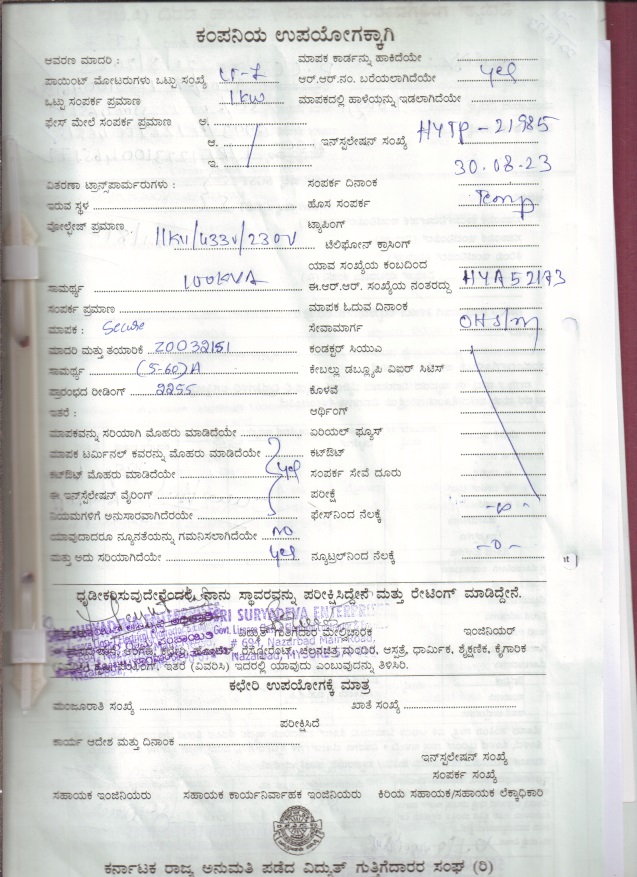 ಕಂಪನಿಯ ಉಪಯೋಗಕ್ಕಾಗಿ
ಆವರಣ ಮಾದರಿ : ಮಾಪಕ ಕಾರ್ಡನ್ನು ಹಾಕಿದೆಯೇ
ಪಾಯಿಂಟ್ ಮೋಟರುಗಳು ಒಟ್ಟು ಸಂಖ್ಯೆ ಆರ್.ಆರ್.ನಂ. ಬರೆಯಲಾಗಿದೆಯೇ yes
ಒಟ್ಟು ಸಂಪರ್ಕ ಪ್ರಮಾಣ 1kw ಮಾಪಕದಲ್ಲಿ ಹಾಳೆಯನ್ನು ಇಡಲಾಗಿದೆಯೇ
ಫೇಸ್ ಮೇಲೆ ಸಂಪರ್ಕ ಪ್ರಮಾಣ ಆ.
ಆ. ಇನ್‌ಸ್ಟಲೇಷನ್ ಸಂಖ್ಯೆ HYTP-21985
ಇ. 30.08.23
ವಿತರಣಾ ಟ್ರಾನ್ಸ್‌ಪಾರ್ಮರುಗಳು : ಸಂಪರ್ಕ ದಿನಾಂಕ
ಇರುವ ಸ್ಥಳ ಹೊಸ ಸಂಪರ್ಕ Temp
ವೋಲ್ಟೇಜ್ ಪ್ರಮಾಣ 11KV/433V/230V ಟ್ಯಾಪಿಂಗ್
ಟೆಲಿಫೋನ್ ಕ್ರಾಸಿಂಗ್
ಯಾವ ಸಂಖ್ಯೆಯ ಕಂಬದಿಂದ
ಸಾಮರ್ಥ್ಯ 100KVA ಈ.ಆರ್.ಆರ್. ಸಂಖ್ಯೆಯ ನಂತರದ್ದು HYA52173
ಸಂಪರ್ಕ ಪ್ರಮಾಣ ಮಾಪಕ ಓದುವ ದಿನಾಂಕ
ಮಾಪಕ : Secure ಸೇವಾಮಾರ್ಗ OHS/m
ಮಾದರಿ ಮತ್ತು ತಯಾರಿಕೆ 20032151 ಕಂಡಕ್ಟರ್ ಸಿಯುಎ
ಸಾಮರ್ಥ್ಯ (5-60)A ಕೇಬಲ್ಲು ಡಬ್ಲ್ಯೂಪಿ ವಿಐಆರ್ ಸಿಟಿಸ್
ಪ್ರಾರಂಭದ ರೀಡಿಂಗ್ 2255 ಕೊಳವೆ
ಇತರೆ : ಆರ್ಥಿಂಗ್
ಮಾಪಕವನ್ನು ಸರಿಯಾಗಿ ಮೊಹರು ಮಾಡಿದೆಯೇ ಏರಿಯಲ್ ಫ್ಯೂಸ್
ಮಾಪಕ ಟರ್ಮಿನಲ್ ಕವರನ್ನು ಮೊಹರು ಮಾಡಿದೆಯೇ ಕಟ್‌ಔಟ್
ಕಟ್‌ಔಟ್ ಮೊಹರು ಮಾಡಿದೆಯೇ yes ಸಂಪರ್ಕ ಸೇವೆ ದೂರು
ಈ ಇನ್‌ಸ್ಟಲೇಷನ್ ವೈರಿಂಗ್ ಪರೀಕ್ಷೆ
ನಿಯಮಗಳಿಗೆ ಅನುಸಾರವಾಗಿದೆಯೇ ಫೇಸ್‌ನಿಂದ ನೆಲಕ್ಕೆ
ಯಾವುದಾದರೂ ನ್ಯೂನತೆಯನ್ನು ಗಮನಿಸಲಾಗಿದೆಯೇ NO
ಮತ್ತು ಅದು ಸರಿಯಾಗಿದೆಯೇ yes ನ್ಯೂಟ್ರಲ್‌ನಿಂದ ನೆಲಕ್ಕೆ -0-
ಧೃಡೀಕರಿಸುವುದೇನೆಂದರೆ, ನಾನು ಸ್ಥಾವರವನ್ನು ಪರೀಕ್ಷಿಸಿದ್ದೇನೆ ಮತ್ತು ರೇಟಿಂಗ್ ಮಾಡಿದ್ದೇನೆ.
SRI SURYADEVA ENTERPRISES
ವಿದ್ಯುತ್ ಗುತ್ತಿಗೆದಾರ ಮೇಲಿಚಾರಕ ಇಂಜಿನಿಯರ್
# 694, Nazarbad Main
ರೆಸ್ಟೋರೆಂಟ್, ಚಲನಚಿತ್ರ ಮಂದಿರ, ಆಸ್ಪತ್ರೆ, ಧಾರ್ಮಿಕ, ಶೈಕ್ಷಣಿಕ, ಕೈಗಾರಿಕ
ಇತರೆ (ವಿವರಿಸಿ) ಇದರಲ್ಲಿ ಯಾವುದು ಎಂಬುವುದನ್ನು ತಿಳಿಸಿರಿ.
ಕಛೇರಿ ಉಪಯೋಗಕ್ಕೆ ಮಾತ್ರ
ಮಂಜೂರಾತಿ ಸಂಖ್ಯೆ ಖಾತೆ ಸಂಖ್ಯೆ
ಪರೀಕ್ಷಿಸಿದೆ
ಕಾರ್ಯ ಆದೇಶ ಮತ್ತು ದಿನಾಂಕ
ಇನ್‌ಸ್ಟಲೇಷನ್ ಸಂಖ್ಯೆ
ಸಂಪರ್ಕ ಸಂಖ್ಯೆ
ಸಹಾಯಕ ಇಂಜಿನಿಯರು ಸಹಾಯಕ ಕಾರ್ಯನಿರ್ವಾಹಕ ಇಂಜಿನಿಯರು ಕಿರಿಯ ಸಹಾಯಕ/ಸಹಾಯಕ ಲೆಕ್ಕಾಧಿಕಾರಿ
ಕರ್ನಾಟಕ ರಾಜ್ಯ ಅನುಮತಿ ಪಡೆದ ವಿದ್ಯುತ್ ಗುತ್ತಿಗೆದಾರರ ಸಂಘ (ರಿ)